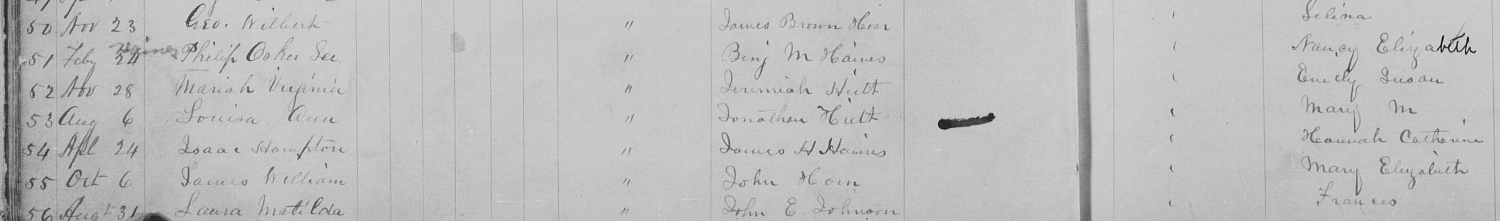 50 Nov 23 Geo. Wilbert " James Brown Horn " Selina
51 Feby 24 Haines Philip Ooker Lee " Benj M Haines " Nancy Elizabeth
52 Nov 28 Mariah Virginia " Jeremiah Hiett " Emily Susan
53 Aug 6 Louisa Ann " Jonathan Hiett " Mary M
54 Apl 24 Isaac Hampton " James H Haines " Hannah Catherine
55 Oct 6 James William " John Horn " Mary Elizabeth
56 Augt 31 Laura Matilda " John E Johnson " Frances